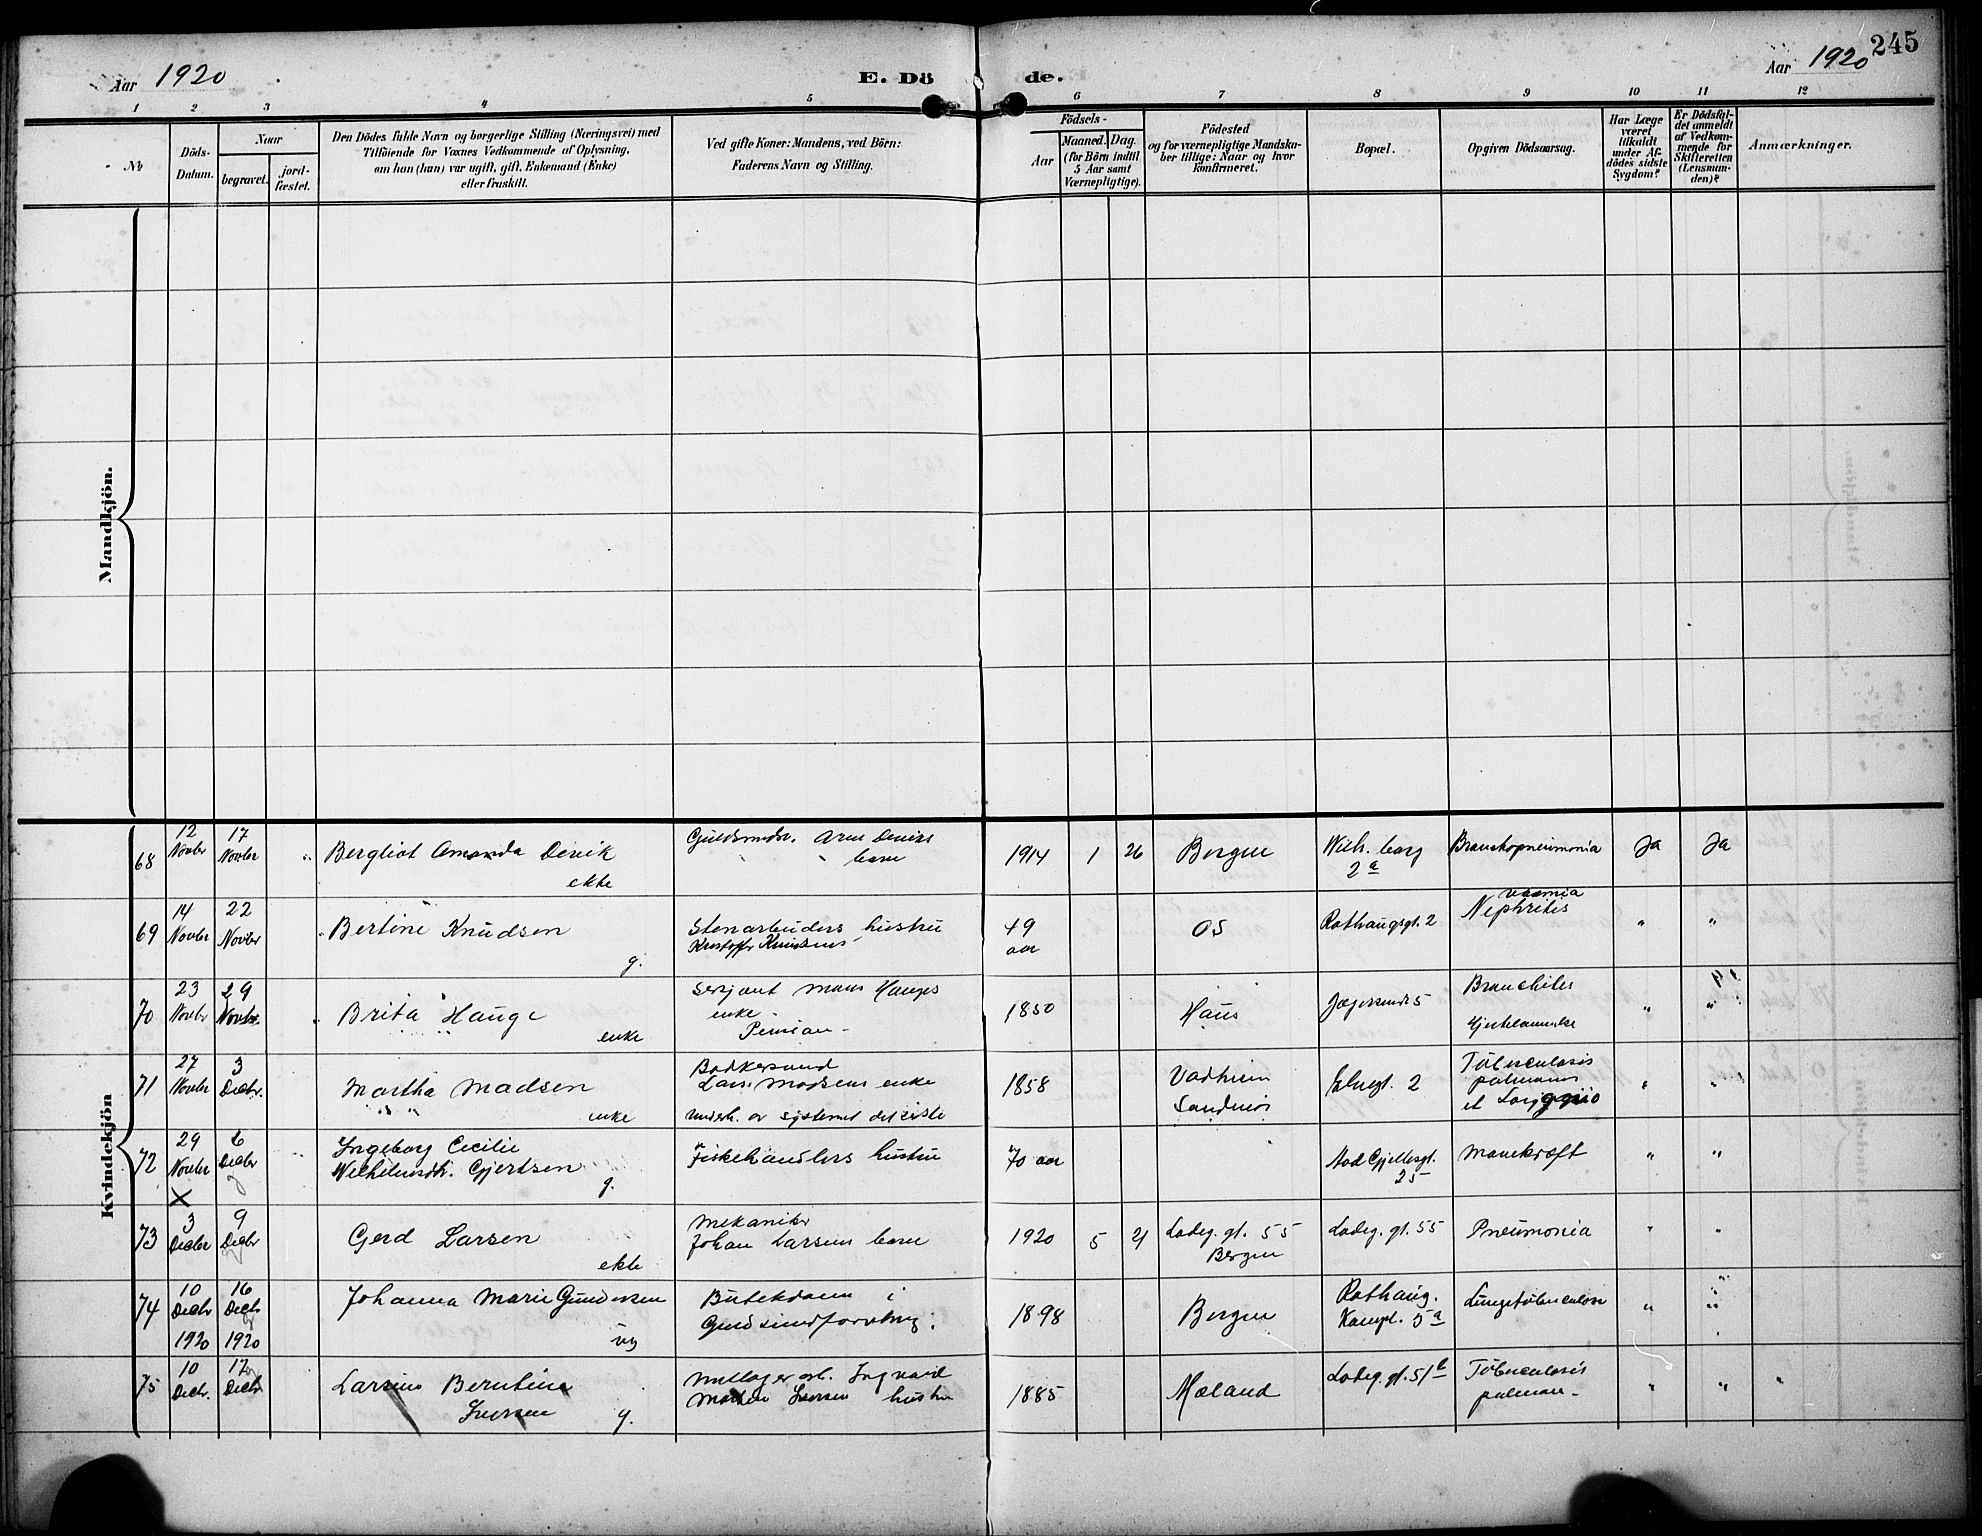 245
Aar 1920
E. Dö de.
Aar 1920
1 2 3 4 5 6 7 8 9 10 11 12
No
Döds-Datum.
Naar
begravet.
jord-fæstet.
Den Dödes fulde Navn og borgerlige Stilling (Næringsvei) med
Tilföiende for Voxnes Vedkommende af Oplysning,
om han (hun) var ugift, gift, Enkemand (Enke)
eller fraskilt.
Ved gifte Koner: Mandens, ved Börn:
Faderens Navn og Stilling.
Födsels-
Aar
Maaned. Dag.
(for Börn indtil
5 Aar samt
Værnepligtige).
Födested
og for værnepligtige Mandska-
ber tillige: Naar og hvor
konfirmeret.
Bopæl.
Opgiven Dödsaarsag.
Har Læge
været
tilkaldt
under Af-
dödes sidste
Sygdom?
Er Dödsfal-
det anmeldt
af Vedkom-
mende for
Skifteretten
(Lensman-
den)?
Anmærkninger.
Mandkjön.
Kvindekjön
68 12 Novbr 17 Novbr Bergliot Amanda Devik ekte
barn
1914 1 26 Bergen Wilh. berg 2 a Bronchopneumonia Ja Ja
69 14 Novbr 22 Novbr Bertine Knudsen g.
Stenarbeiders hustru
49 aar Os Rothaugsgt. 2 Nephritis " "
70 23 Novbr 29 Novbr. Brita Hauge enke
Serjant Mons Hauges
enke
1850 Haus 5 " "
71 27 Novbr 3 Decbr. Martha Madsen enke
Lars Madsens enke
1858 Vadheim 2 Tuberculosis
pulmonum
" "
72 29 Novbr 6 Decbr Ingeborg Cecilie
Gjertsen g.
X
Fiskehandlers hustru
70 aar 25 " "
73 3 Decbr 9 Decbr Gerd Larsen ekte
Mekaniker
Johan Larsens barn
1920 5 21 Ladeg. gt. 55
Bergen Ladeg. gt. 55 Pneumonia " "
74 10 Decbr 1920 16 Decbr 1920 Johanna Marie Gundersen ug
i
1898 Bergen Rothaug. 5 a Lungetuberculose " "
75 10 Decbr. 17 Decbr Larsine Berntine
Iversen g.
Ingvald
Iversen hustru
1885 Mæland Ladeg. gt. 51 b Tuberculosis
pulmon. " " "